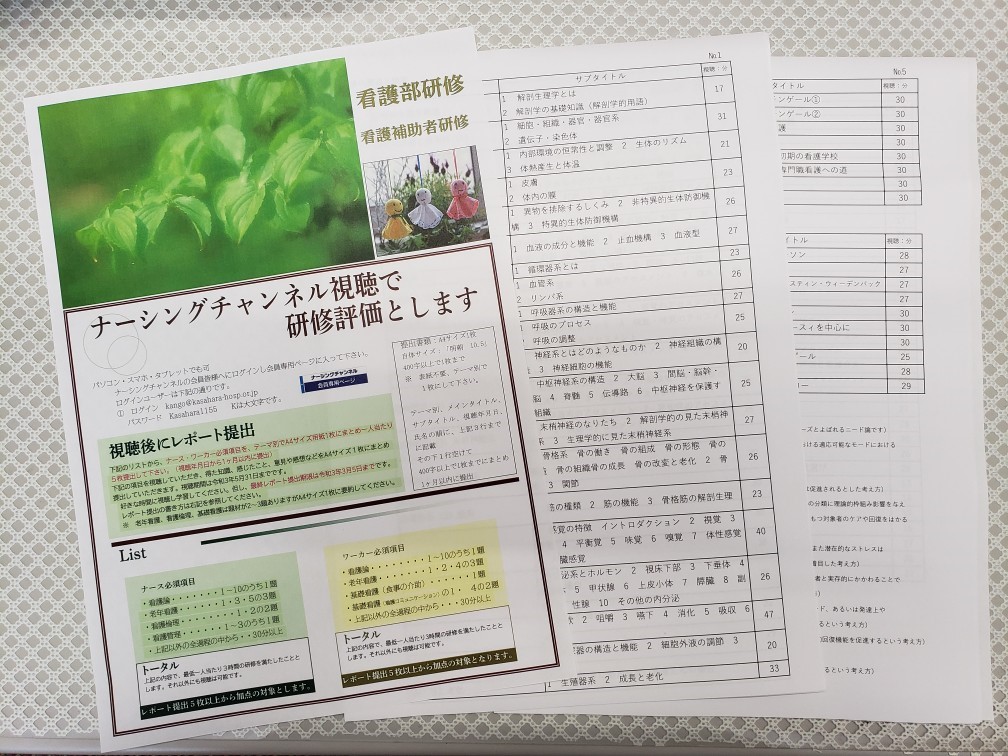 看護部研修
看護補助者研修
ナーシングチャンネル視聴で
研修評価とします
パソコン・スマホ・タブレットでも可
ナーシングチャンネルの会員皆様へにログインし会員専用ページに入って下さい。
ログインユーザーは下記の通りです。
① ログイン kango@kasahara-hosp.or.jp
パスワード Kasahara1155 Kは大文字です。
ナーシングチャンネル
会員専用ページ
提出書類：A4サイズ1枚
字体サイズ：「明朝 10.5」
400字以上で1枚まで
※ 表紙不要、テーマ別で
1枚にして下さい。
テーマ別、メインタイトル、
サブタイトル、視聴年月日、
氏名の順に、上記3行まで
に記載
その下1行空けて
400字以上で1枚までにまとめ
1ヶ月以内に提出
視聴後にレポート提出
下記のリストから、ナース・ワーカー必須項目を、テーマ別でA4サイズ用紙1枚にまとめ一人当たり
5枚提出して下さい。（視聴年月日から1ヶ月以内に提出）
下記の項目を視聴していただき、得た知識、感じたこと、意見や感想などをA4サイズ1枚にまとめ
提出していただきます。視聴期間は令和3年5月31日までです。
好きな時間に視聴し学習してください。但し、最終レポート提出期限は令和3年3月5日までです。
レポート提出の書き方は右記を参照してください。
※ 老年看護、看護倫理、基礎看護は題材が2～3題ありますがA4サイズ1枚に要約してください。
List
ナース必須項目
・看護論・・・・・・・1～10のうち1題
・老年看護・・・・・・1・3・5の3題
・看護倫理・・・・・・・1・2の2題
・看護管理・・・・・1～3のうち1題
・上記以外の全過程の中から・・30分以上
トータル
上記の内容で、最低一人当たり3時間の研修を満たしたことと
します。それ以外にも視聴は可能です。
レポート提出5枚以上から加点の対象とします。
ワーカー必須項目
・看護論・・・・・・1～10のうち1題
・老年看護・・・・・・1・2・4の3題
・基礎看護（食事の介助）・・・・1題
・基礎看護（看護コミュニケーション）の1・ 4の2題
・上記以外の全過程の中から・・30分以上
トータル
上記の内容で、最低一人当たり3時間の研修を満たしたことと
します。それ以外にも視聴は可能です。
レポート提出5枚以上から加点の対象となります。
No.1
サブタイトル 視聴：分
1 解剖生理学とは
2 解剖学の基礎知識（解剖学的用語） 17
1 細胞・組織・器官・器官系
2 遺伝子・染色体 31
1 内部環境の恒常性と調整 2 生体のリズム
3 体熱産生と体温 21
1 皮膚
2 体内の膜 23
1 異物を排除するしくみ 2 非特異的生体防御機
構 3 特異的生体防御機構 26
1 血液の成分と機能 2 止血機構 3 血液型 27
1 循環器系とは 23
1 血管系
2 リンパ系 26
1 呼吸器系の構造と機能 27
呼吸のプロセス
呼吸の調整 25
神経系とはどのようなものか 2 神経組織の構
3 神経細胞の機能 20
中枢神経系の構造 2 大脳 3 間脳・脳幹・
脳 4 脊髄 5 伝導路 6 中枢神経を保護す
組織 25
末梢神経のなりたち 2 解剖学的の見た末梢神
系 3 生理学的に見た末梢神経系 27
骨格系 骨の働き 骨の組成 骨の形態 骨の
骨の組織骨の成長 骨の改変と老化 2 骨
3 関節 26
筋の種類 2 筋の機能 3 骨格筋の解剖生理 23
感覚の特徴 イントロダクション 2 視覚 3
4 平衡覚 5 味覚 6 嗅覚 7 体性感覚
臓感覚 40
泌系とホルモン 2 視床下部 3 下垂体 4
5 甲状腺 6 上皮小体 7 膵臓 8 副
性腺 10 その他の内分泌 26
2 咀嚼 3 嚥下 4 消化 5 吸収 6 47
器の構造と機能 2 細胞外液の調節 3 20
1 生殖器系 2 成長と老化 33
No.5
タイトル 視聴：分
ンゲール① 30
ンゲール② 30
護 30
初期の看護学校 30
専門職看護への道 30
30
30
イトル 視聴：分
ソン 28
27
スティン・ウィーデンバック 27
27
ースィを中心に 30
30
ール 25
28
ー 29
ズとよばれるニード論です）
ける適応可能なモードにおける
は促進されるとした考え方）
の分類に理論的枠組み影響をなえ
もつ対象者のケアや回復をはかる
また潜在的なストレスは
着目した考え方）
書と実存的にかかわることで
ード、あるいは発達上や
るという考え方）
回復機能を促進するという考え方）
るという考え方）